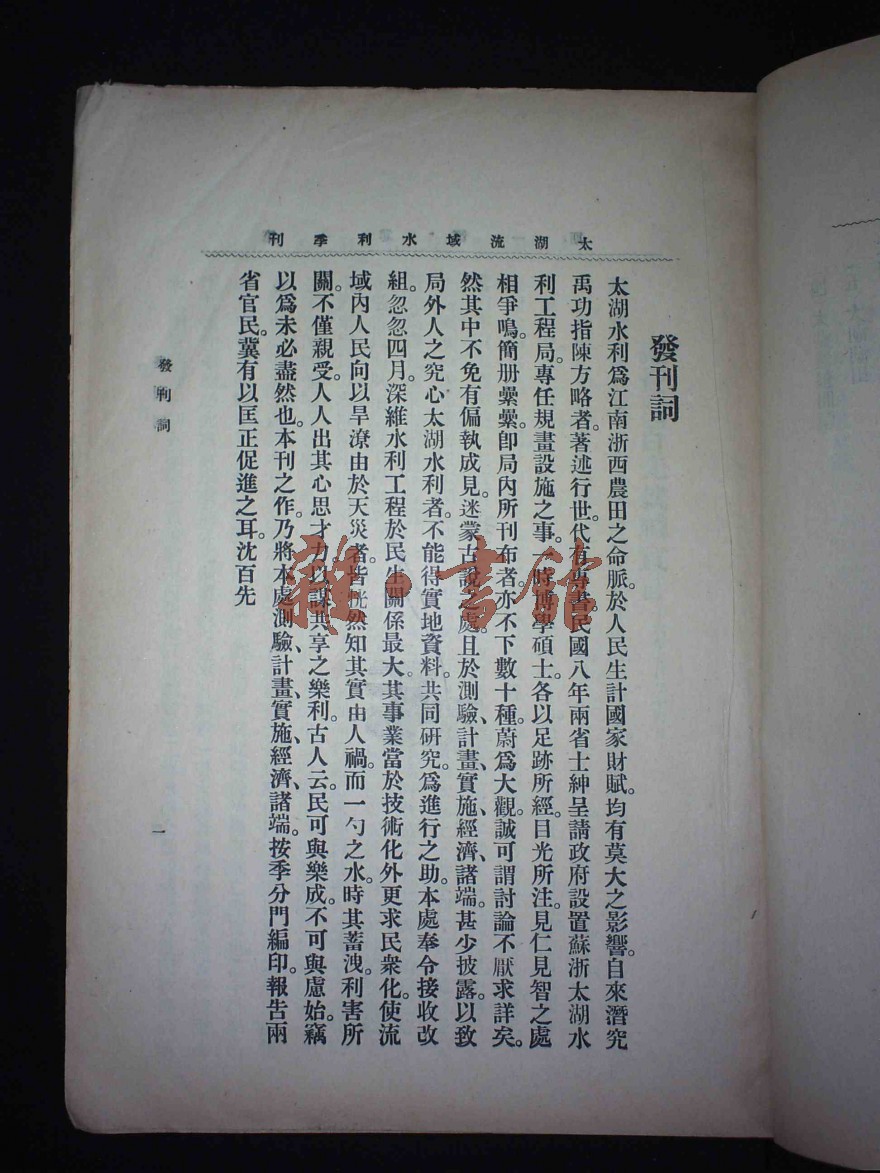 太湖流域水利季刊
發刊詞
太湖水利爲江南浙西農田之命脈。於人民生計國家財賦。均有莫大之影響。自來潛究
禹功指陳方略者。著述行世。代有專書。民國八年兩省士紳呈請政府設置蘇浙太湖水
利工程局。專任規畫設施之事。一時博學碩士。各以足跡所經。目光所注。見仁見智之處
相爭鳴。簡册纍纍。卽局內所刊布者。亦不下數十種。蔚爲大觀。誠可謂討論不厭求詳矣。
然其中不免有偏執成見。迷蒙古說之處。且於測驗、計畫、實施、經濟、諸端。甚少披露。以致
局外人之究心太湖水利者。不能得實地資料。共同研究。爲進行之助。本處奉令接收改
組。忽忽四月。深維水利工程於民生關係最大。其事業當於技術化外更求民衆化。使流
域內人民向以旱潦由於天災者。皆恍然知其實由人禍。而一勺之水。時其蓄洩。利害所
關。不僅親受。人人出其心思才力。以謀共享之樂利。古人云。民可與樂成。不可與慮始。竊
以爲未必盡然也。本刊之作。乃將本處測驗、計畫、實施、經濟、諸端。按季分門編印。報告兩
省官民。冀有以匡正促進之耳。沈百先
發刊詞
一
雜·書館